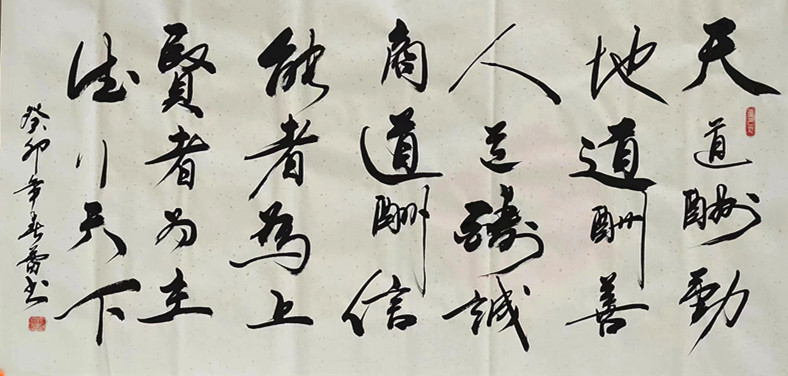 天道酬勤
地道酬善
人道酬誠
商道酬信
能者為上
賢者为主
德行天下
癸卯年春蕾书